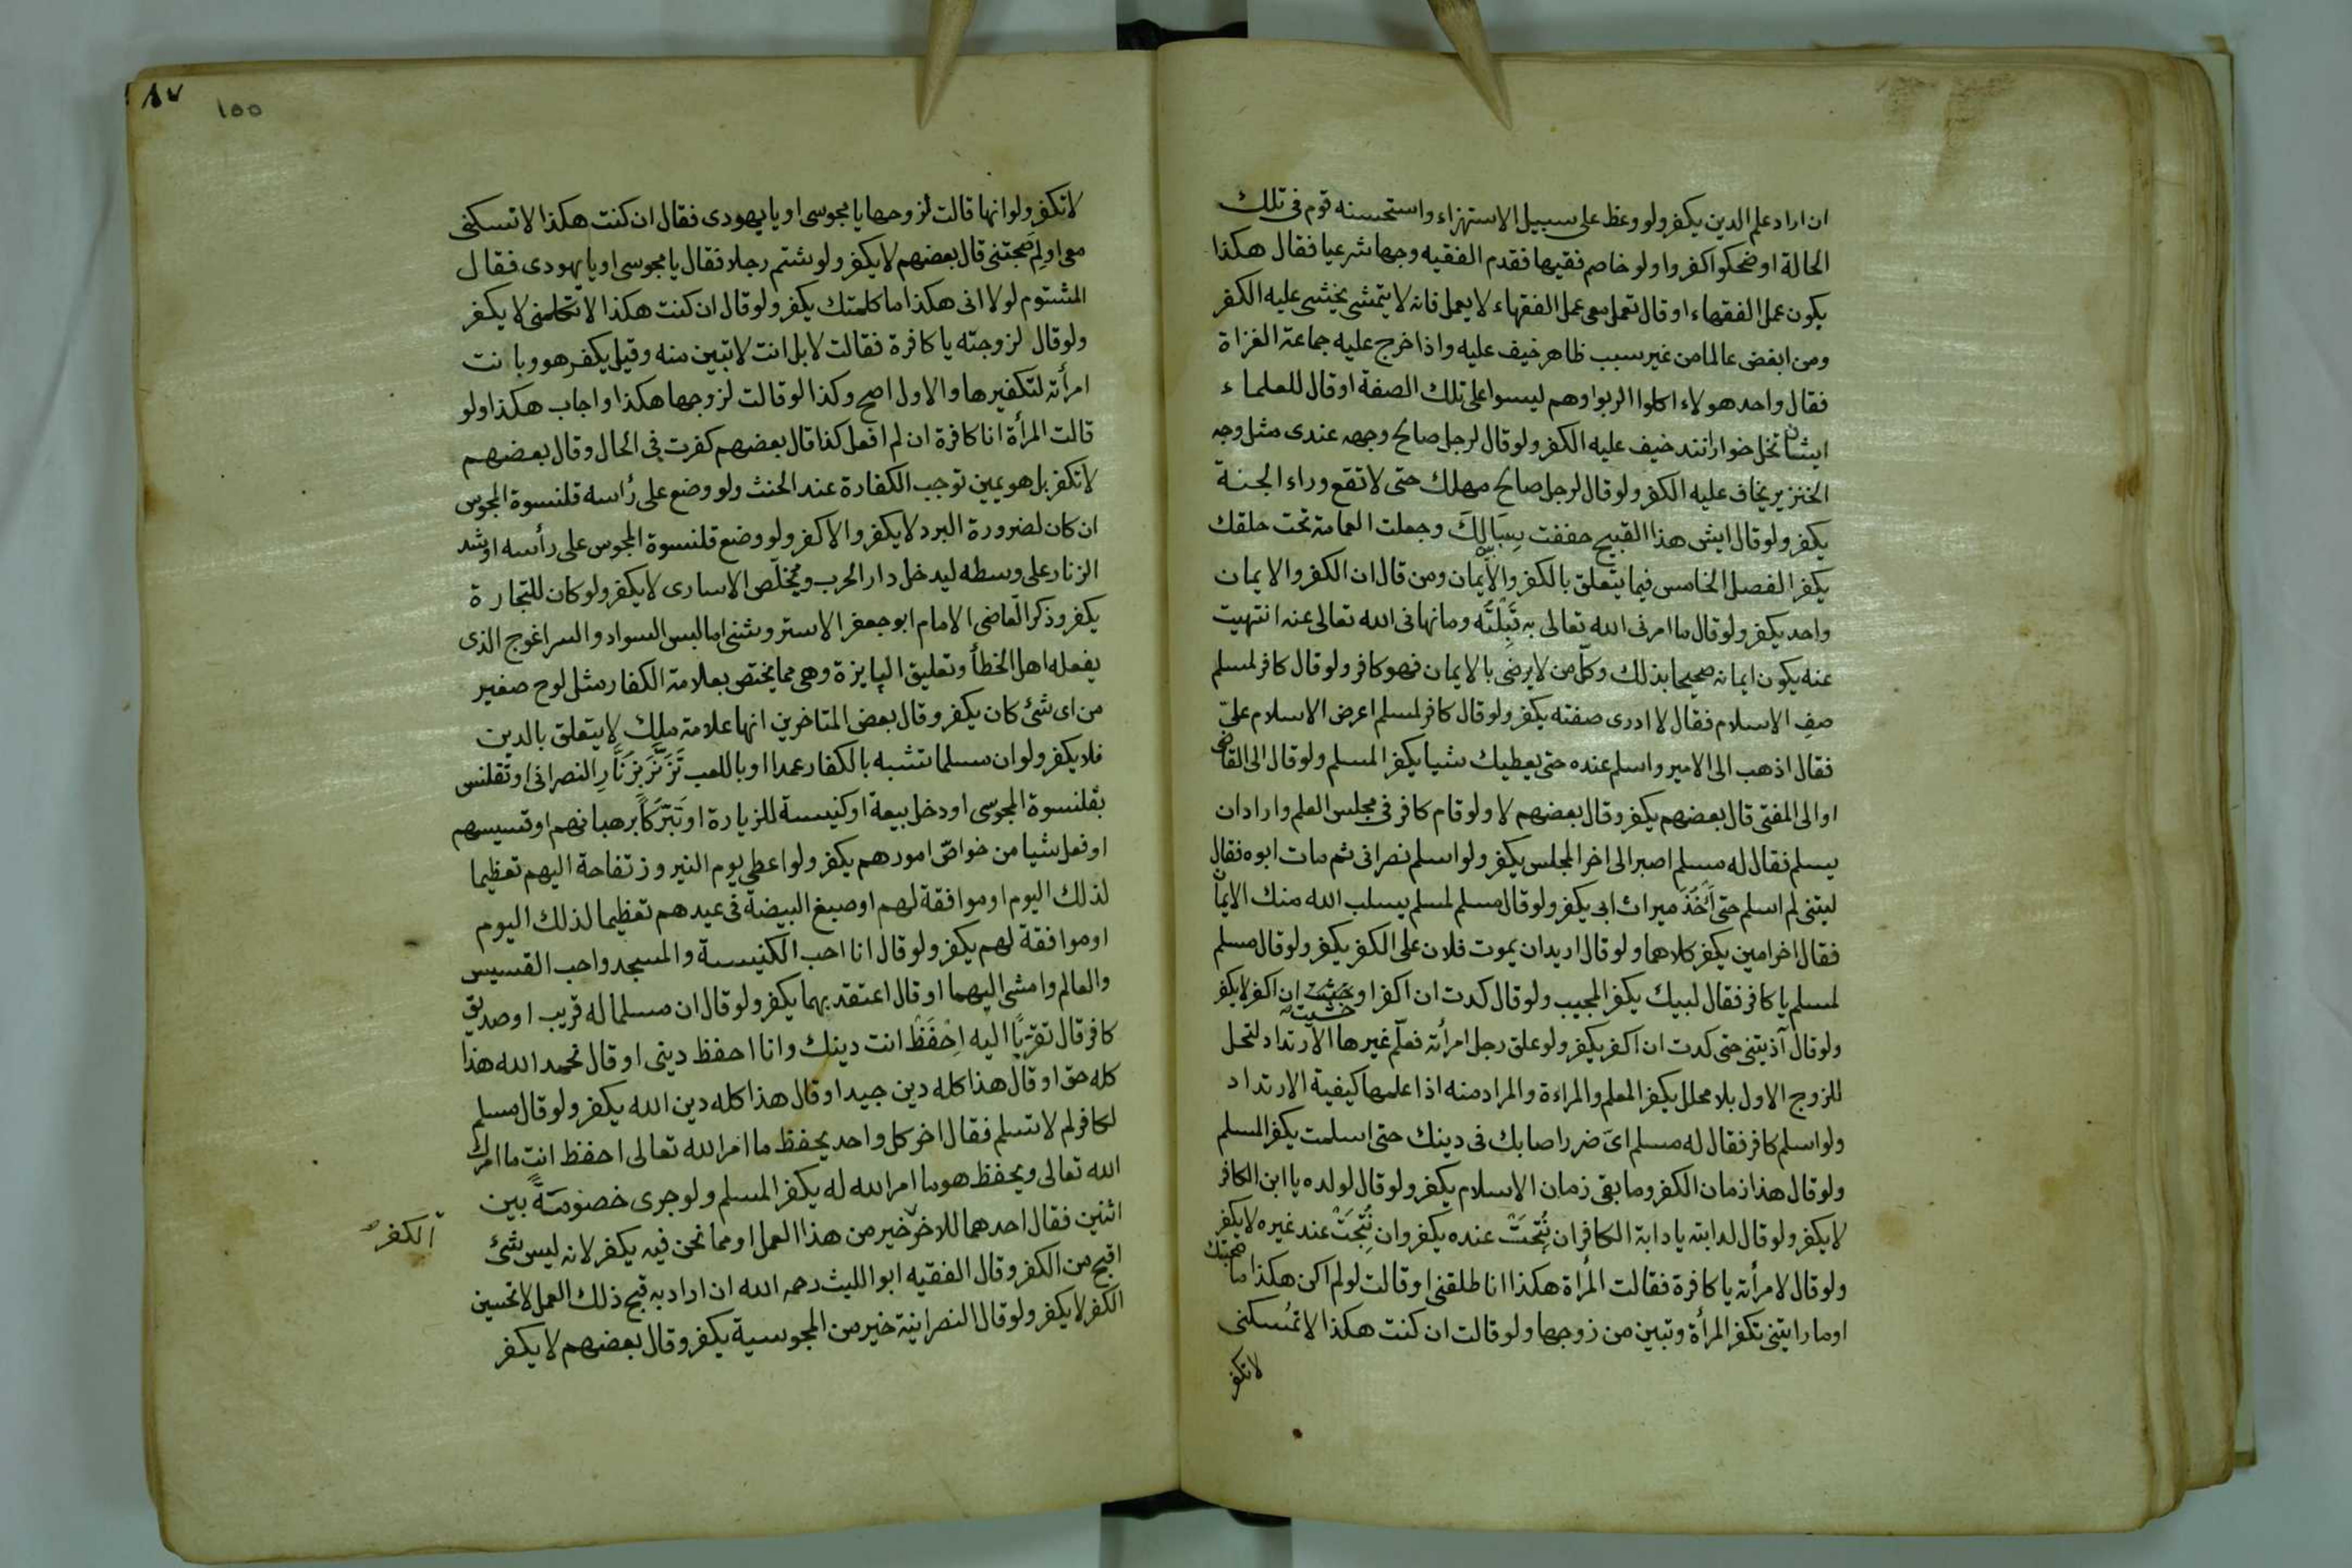 ان اراد علم الدين يكفر ولو وعظ على سبيل الاستهزاء واستحسنه قوم فى تلك
الحالة او ضحكوا كفروا ولو خاصم فقيها فقدم الفقيه وجها شرعيا فقال هكذا
يكون عمل الفقهاء او قال تعمل معى عمل الفقهاء لا يعمل فانه لا يتمشى يخشى عليه الكفر
ومن ابغض عالما من غير سبب ظاهر خيف عليه واذا خرج عليه جماعة الغزاة
فقال واحد هولاء اكلوا الربوا وهم ليسوا على تلك الصفة او قال للعلماء
ايشان خوارانند خيف عليه الكفر ولو قال لرجل صالح وجهه عندى مثل وجه
الخنزير يخاف عليه الكفر ولو قال لرجل صالح مهلك حتى لا تقع وراء الجنة
يكفر ولو قال ايش هذا القبيح حففت سِبَالِكَ وجعلت العمامة تحت حلقك
يكفر الفصل الخامس فيما يتعلق بالكفر والايمان ومن قال ان الكفر والايمان
واحد يكفر ولو قال ما امرنى الله تعالى به قَبِلْتُه وما نهانى الله تعالى عنه انتهيت
عنه يكون ايمانه صحيحا بذلك وكل من لا يرضى بالايمان فهو كافر ولو قال كافر لمسلم
صفِ الاسلام فقال لا ادرى صفته يكفر ولو قال كافر لمسلم اعرض الاسلام علىّ
فقال اذهب الى الامير واسلم عنده حتى يعطيك شيا يكفر المسلم ولو قال الى القاضى
او الى المفتى قال بعضهم يكفر وقال بعضهم لا ولو قام كافر فى مجلس العلم واراد ان
يسلم فقال له مسلم اصبر الى اخر المجلس يكفر ولو اسلم نصرانى ثم مات ابوه فقال
ليتنى لم اسلم حتى آخُذَ ميراث ابى يكفر ولو قال مسلم لمسلم يسلب الله منك الايمان
فقال اخر امين يكفر كلاهما ولو قال اريد ان يموت فلان على الكفر يكفر ولو قال مسلم
لمسلم يا كافر فقال لبيك يكفر المجيب ولو قال كدت ان اكفر او خشيت ان اكفر لا يكفر
ولو قال آذيتنى حتى كدت ان اكفر يكفر ولو علق رجل امرأته فعلّم غيرها الارتداد لتحل
للزوج الاول بلا محلل يكفر المعلم والمراءة والمراد منه اذا علمها كيفية الارتداد
ولو اسلم كافر فقال له مسلم اىّ ضرر اصابك فى دينك حتى اسلمت يكفر المسلم
ولو قال هذا زمان الكفر وما بقى زمان الاسلام يكفر ولو قال لولده يا ابن الكافر
لا يكفر ولو قال لدابته يا دابة الكافر ان نُتِجَتْ عنده يكفر وان نُتِجَتْ عند غيره لا يكفر
ولو قال لامرأته يا كافرة فقالت المرأة هكذا انا طلقنى او قالت لو لم اكن هكذا ما صحبتك
او ما رايتنى تكفر المرأة وتبين من زوجها ولو قالت ان كنت هكذا لا تمسكنى
لا تكفر
٨٧
١٥٥
لا تكفر ولو انها قالت لزوجها يا مجوسى او يا يهودى فقال ان كنت هكذا لا تسكنى
معى او لِمَ صَحِبتنى قال بعضهم لا يكفر ولو شتم رجلا فقال يا مجوسى او يا يهودى فقال
المشتوم لولا انى هكذا ما كلمتك يكفر ولو قال ان كنت هكذا لا تكلمنى لا يكفر
ولو قال لزوجته يا كافرة فقالت لا بل انت لا تبين منه وقيل يكفر هو وبانت
امرأته لتكفيرها والاول اصح وكذا لو قالت لزوجها هكذا واجاب هكذا ولو
قالت المرأة انا كافرة ان لم افعل كذا قال بعضهم كفرت فى الحال وقال بعضهم
لا تكفر بل هو يمين توجب الكفارة عند الحنث ولو وضع على رأسه قلنسوة المجوس
ان كان لضرورة البرد لا يكفر والا كفر ولو وضع قلنسوة المجوس على رأسه او شد
الزنار على وسطه ليدخل دار الحرب ويخلّص الاسارى لا يكفر ولو كان للتجارة
يكفر وذكر القاضى الامام ابو جعفر الاستروشنى اما لبس السواد والسراغوج الذى
يفعله اهل الخطأ وتعليق البايزة وهى مما يختص بعلامة الكفار مثل لوح صغير
من اى شئ كان يكفر وقال بعض المتاخرين انها علامة ملك لا يتعلق بالدين
فلا يكفر ولو ان مسلما تشبه بالكفار عمدا او باللعب تَزَنَّرَ بِزُنَّارِ النصرانى او تقلنس
بقلنسوة المجوسى او دخل بيعة او كنيسة للزيارة او تَبَرّكاً برهبانهم او قسيسهم
او فعل شيا من خواصّ امورهم يكفر ولو اعطى يوم النيروز تفاحة اليهم تعظيما
لذلك اليوم او موافقة لهم او صبغ البيضة فى عيدهم تعظيما لذلك اليوم
او موافقة لهم يكفر ولو قال انا احب الكنيسة والمسجد واحب القسيس
والعالم وامشى اليهما او قال اعتقد بهما يكفر ولو قال ان مسلما له قريب او صديق
كافر قال تقرّبًا اليه اِحْفَظْ انت دينك وانا احفظ دينى او قال نحمد الله هذا
كله حق او قال هذا كله دين جيد او قال هذا كله دين الله يكفر ولو قال مسلم
لكافر لم لا تسلم فقال اخر كل واحد يحفظ ما امر الله تعالى احفظ انت ما امرك
الله تعالى ويحفظ هو ما امر الله له يكفر المسلم ولو جرى خصُومَةٌ بين
اثنين فقال احدهما للاخر خير من هذا العمل او مما نحن فيه يكفر لانه ليس شئ
الكفر
اقبح من الكفر وقال الفقيه ابو الليث رحمه الله ان اراد به قبح ذلك العمل لا تحسين
الكفر لا يكفر ولو قال النصرانية خير من المجوسية يكفر وقال بعضهم لا يكفر